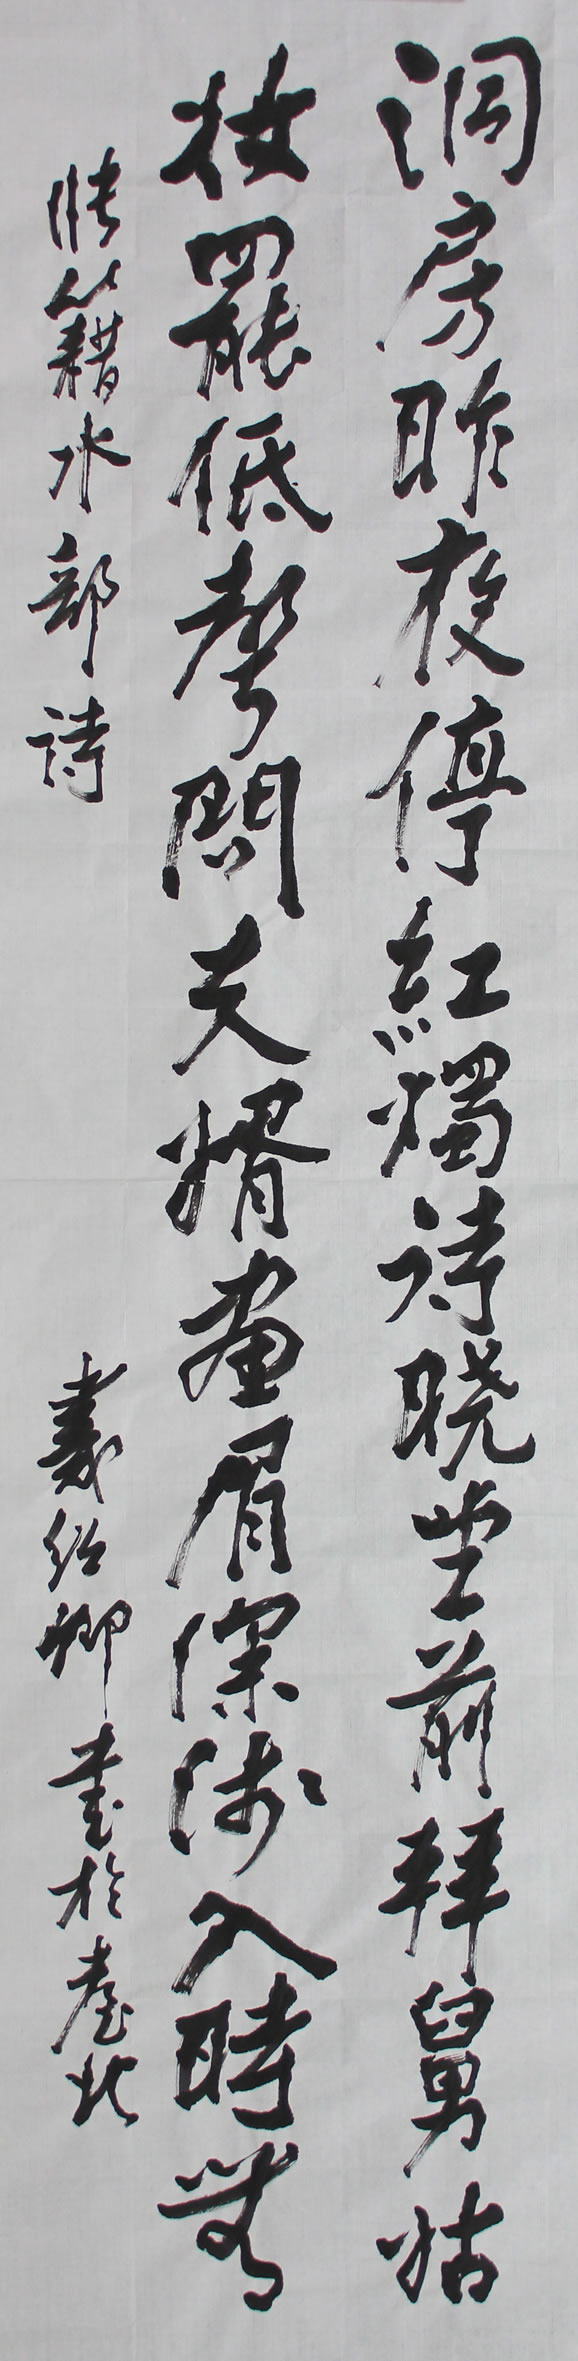 洞房昨夜停紅燭待曉堂前拜舅姑
妝罷低聲問夫婿畫眉深淺入時無
張籍水部詩
戴紹卿書於臺北